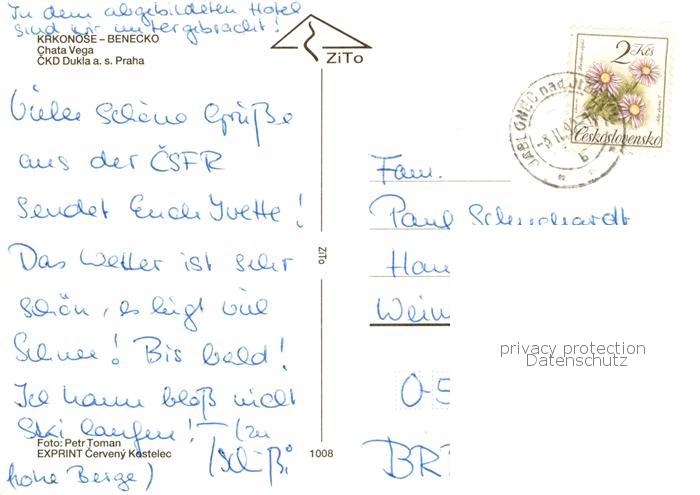 In dem abgebildeten Hotel
sind wir untergebracht!
KRKONOŠE – BENECKO
Chata Vega
ČKD Dukla a. s. Praha
ZiTo
Viele schöne Grüße
aus der ČSFR
sendet Euch Yvette!
Das Wetter ist sehr
schön, es liegt viel
Schnee! Bis bald!
Ich kann bloß nicht
Ski laufen! (zu
hohe Berge)
Tschüß!
Foto: Petr Toman
EXPRINT Červený Kostelec
1008
ZiTo
2 Kčs
Československo
JABLONEC nad
b
Fam.
Paul Schuchardt
Hau
Weim
O-5
BR
privacy protection
Datenschutz